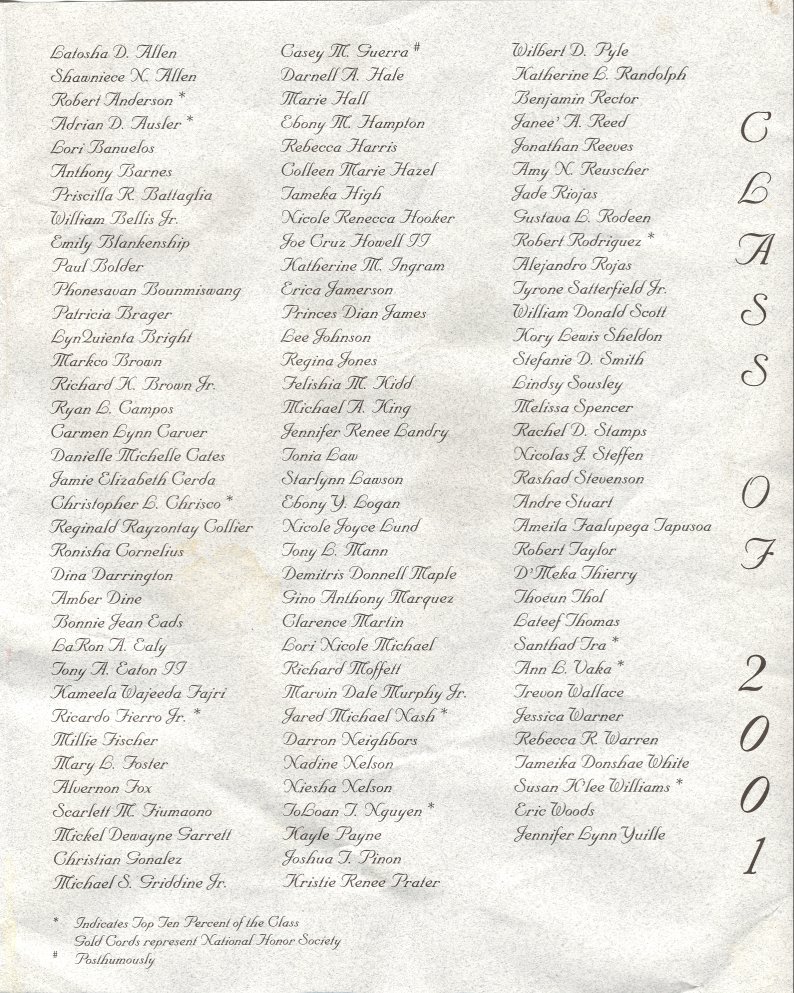 Latosha D. Allen
Shawniece N. Allen
Robert Anderson *
Adrian D. Ausler *
Lori Banuelos
Anthony Barnes
Priscilla R. Battaglia
William Bellis Jr.
Emily Blankenship
Paul Bolder
Phonesavan Bounmiswang
Patricia Brager
LynQuienta Bright
Markco Brown
Richard K. Brown Jr.
Ryan L. Campos
Carmen Lynn Carver
Danielle Michelle Cates
Jamie Elizabeth Cerda
Christopher L. Chrisco *
Reginald Rayzontay Collier
Ronisha Cornelius
Dina Darrington
Amber Dine
Bonnie Jean Eads
LaRon A. Ealy
Tony A. Eaton II
Kameela Wajeeda Fajri
Ricardo Fierro Jr. *
Millie Fischer
Mary L. Foster
Alvernon Fox
Scarlett M. Fiumaono
Mickel Dewayne Garrett
Christian Gonalez
Michael S. Griddine Jr.
Casey M. Guerra #
Darnell A. Hale
Marie Hall
Ebony M. Hampton
Rebecca Harris
Colleen Marie Hazel
Tameka High
Nicole Renecca Hooker
Joe Cruz Howell II
Katherine M. Ingram
Erica Jamerson
Princes Dian James
Lee Johnson
Regina Jones
Felishia M. Kidd
Michael A. King
Jennifer Renee Landry
Tonia Law
Starlynn Lawson
Ebony Y. Logan
Nicole Joyce Lund
Tony L. Mann
Demitris Donnell Maple
Gino Anthony Marquez
Clarence Martin
Lori Nicole Michael
Richard Moffett
Marvin Dale Murphy Jr.
Jared Michael Nash *
Darron Neighbors
Nadine Nelson
Niesha Nelson
ToLoan T. Nguyen *
Kayle Payne
Joshua T. Pinon
Kristie Renee Prater
Wilbert D. Pyle
Katherine L. Randolph
Benjamin Rector
Janee' A. Reed
Jonathan Reeves
Amy N. Reuscher
Jade Riojas
Gustava L. Rodeen
Robert Rodriguez *
Alejandro Rojas
Tyrone Satterfield Jr.
William Donald Scott
Kory Lewis Sheldon
Stefanie D. Smith
Lindsy Sousley
Melissa Spencer
Rachel D. Stamps
Nicolas J. Steffen
Rashad Stevenson
Andre Stuart
Ameila Faalupega Tapusoa
Robert Taylor
D'Meka Thierry
Thoeun Thol
Lateef Thomas
Santhad Tra *
Ann L. Vaka *
Trevon Wallace
Jessica Warner
Rebecca R. Warren
Tameika Donshae White
Susan K'lee Williams *
Eric Woods
Jennifer Lynn Yuille
CLASS OF 2001
* Indicates Top Ten Percent of the Class
Gold Cords represent National Honor Society
# Posthumously